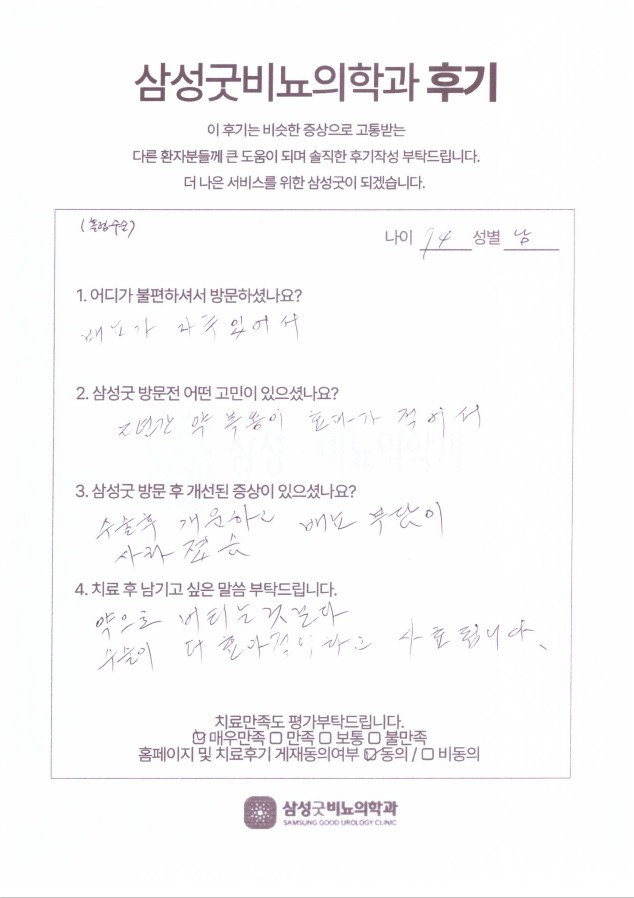 삼성굿비뇨의학과 후기
이 후기는 비슷한 증상으로 고통받는
다른 환자분들께 큰 도움이 되며 솔직한 후기작성 부탁드립니다.
더 나은 서비스를 위한 삼성굿이 되겠습니다.
나이 74 성별 남
1. 어디가 불편하셔서 방문하셨나요?
배뇨가 자주 있어서
2. 삼성굿 방문전 어떤 고민이 있으셨나요?
약 복용이 효과가 적어서
3. 삼성굿 방문 후 개선된 증상이 있으셨나요?
수술후 개운하고 배뇨 부담이
사라졌슴
4. 치료 후 남기고 싶은 말씀 부탁드립니다.
약으로 버티는것보다
수술이 더 효과적이라고 사료됩니다.
치료만족도 평가부탁드립니다.
매우만족 만족 보통 불만족
홈페이지 및 치료후기 게재동의여부 동의 / 비동의
삼성굿비뇨의학과
SAMSUNG GOOD UROLOGY CLINIC